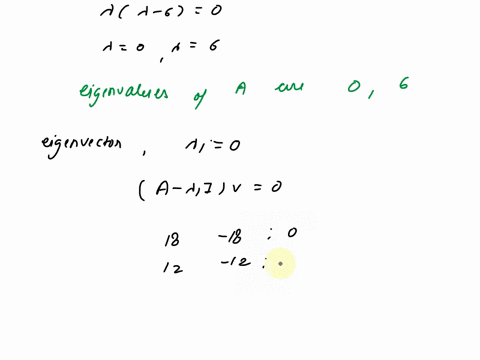 λ(λ-6) = 0
λ = 0, λ = 6
eigenvalues of A are 0, 6
eigenvector, λ₁ = 0
(A-λ₁I)v = 0
18 -18 : 0
12 -12 :